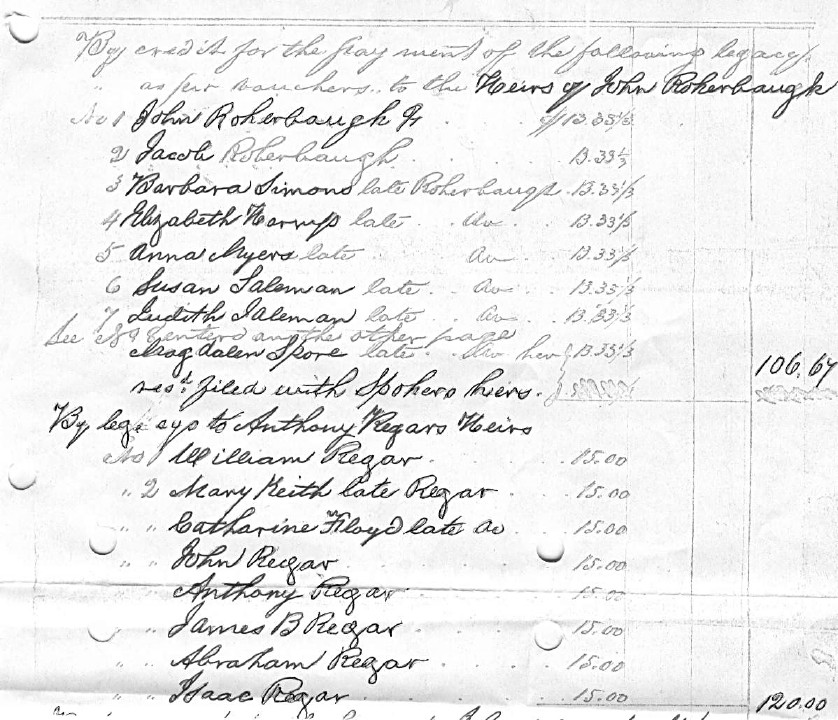 By credit for the pay ment of the following legacy
" as per vouchers to the Heirs of John Roherbaugh
No 1 John Roherbaugh Jr $13.33 1/3
2 Jacob Roherbaugh 13.33 1/3
3 Barbara Simons late Roherbaugh 13.33 1/3
4 Elizabeth Harnp late Do 13.33 1/3
5 Anna Myers late Do 13.33 1/3
6 Susan Taleman late Do 13.33 1/3
7 Judith Taleman late Do 13.33 1/3
See No 8 enterd on the other page
Magdalen Spore late Do her 13.33 1/3 106.67
rest filed with Spohers heirs.
By legacys to Anthony Regars Heirs
No 1 William Regar 15.00
" 2 Mary Keith late Regar 15.00
" " Catharine Floyd late Do 15.00
" " John Regar 15.00
" " Anthony Regar 15.00
" " James B Regar 15.00
" " Abraham Regar 15.00
" " Isaac Regar 15.00 120.00